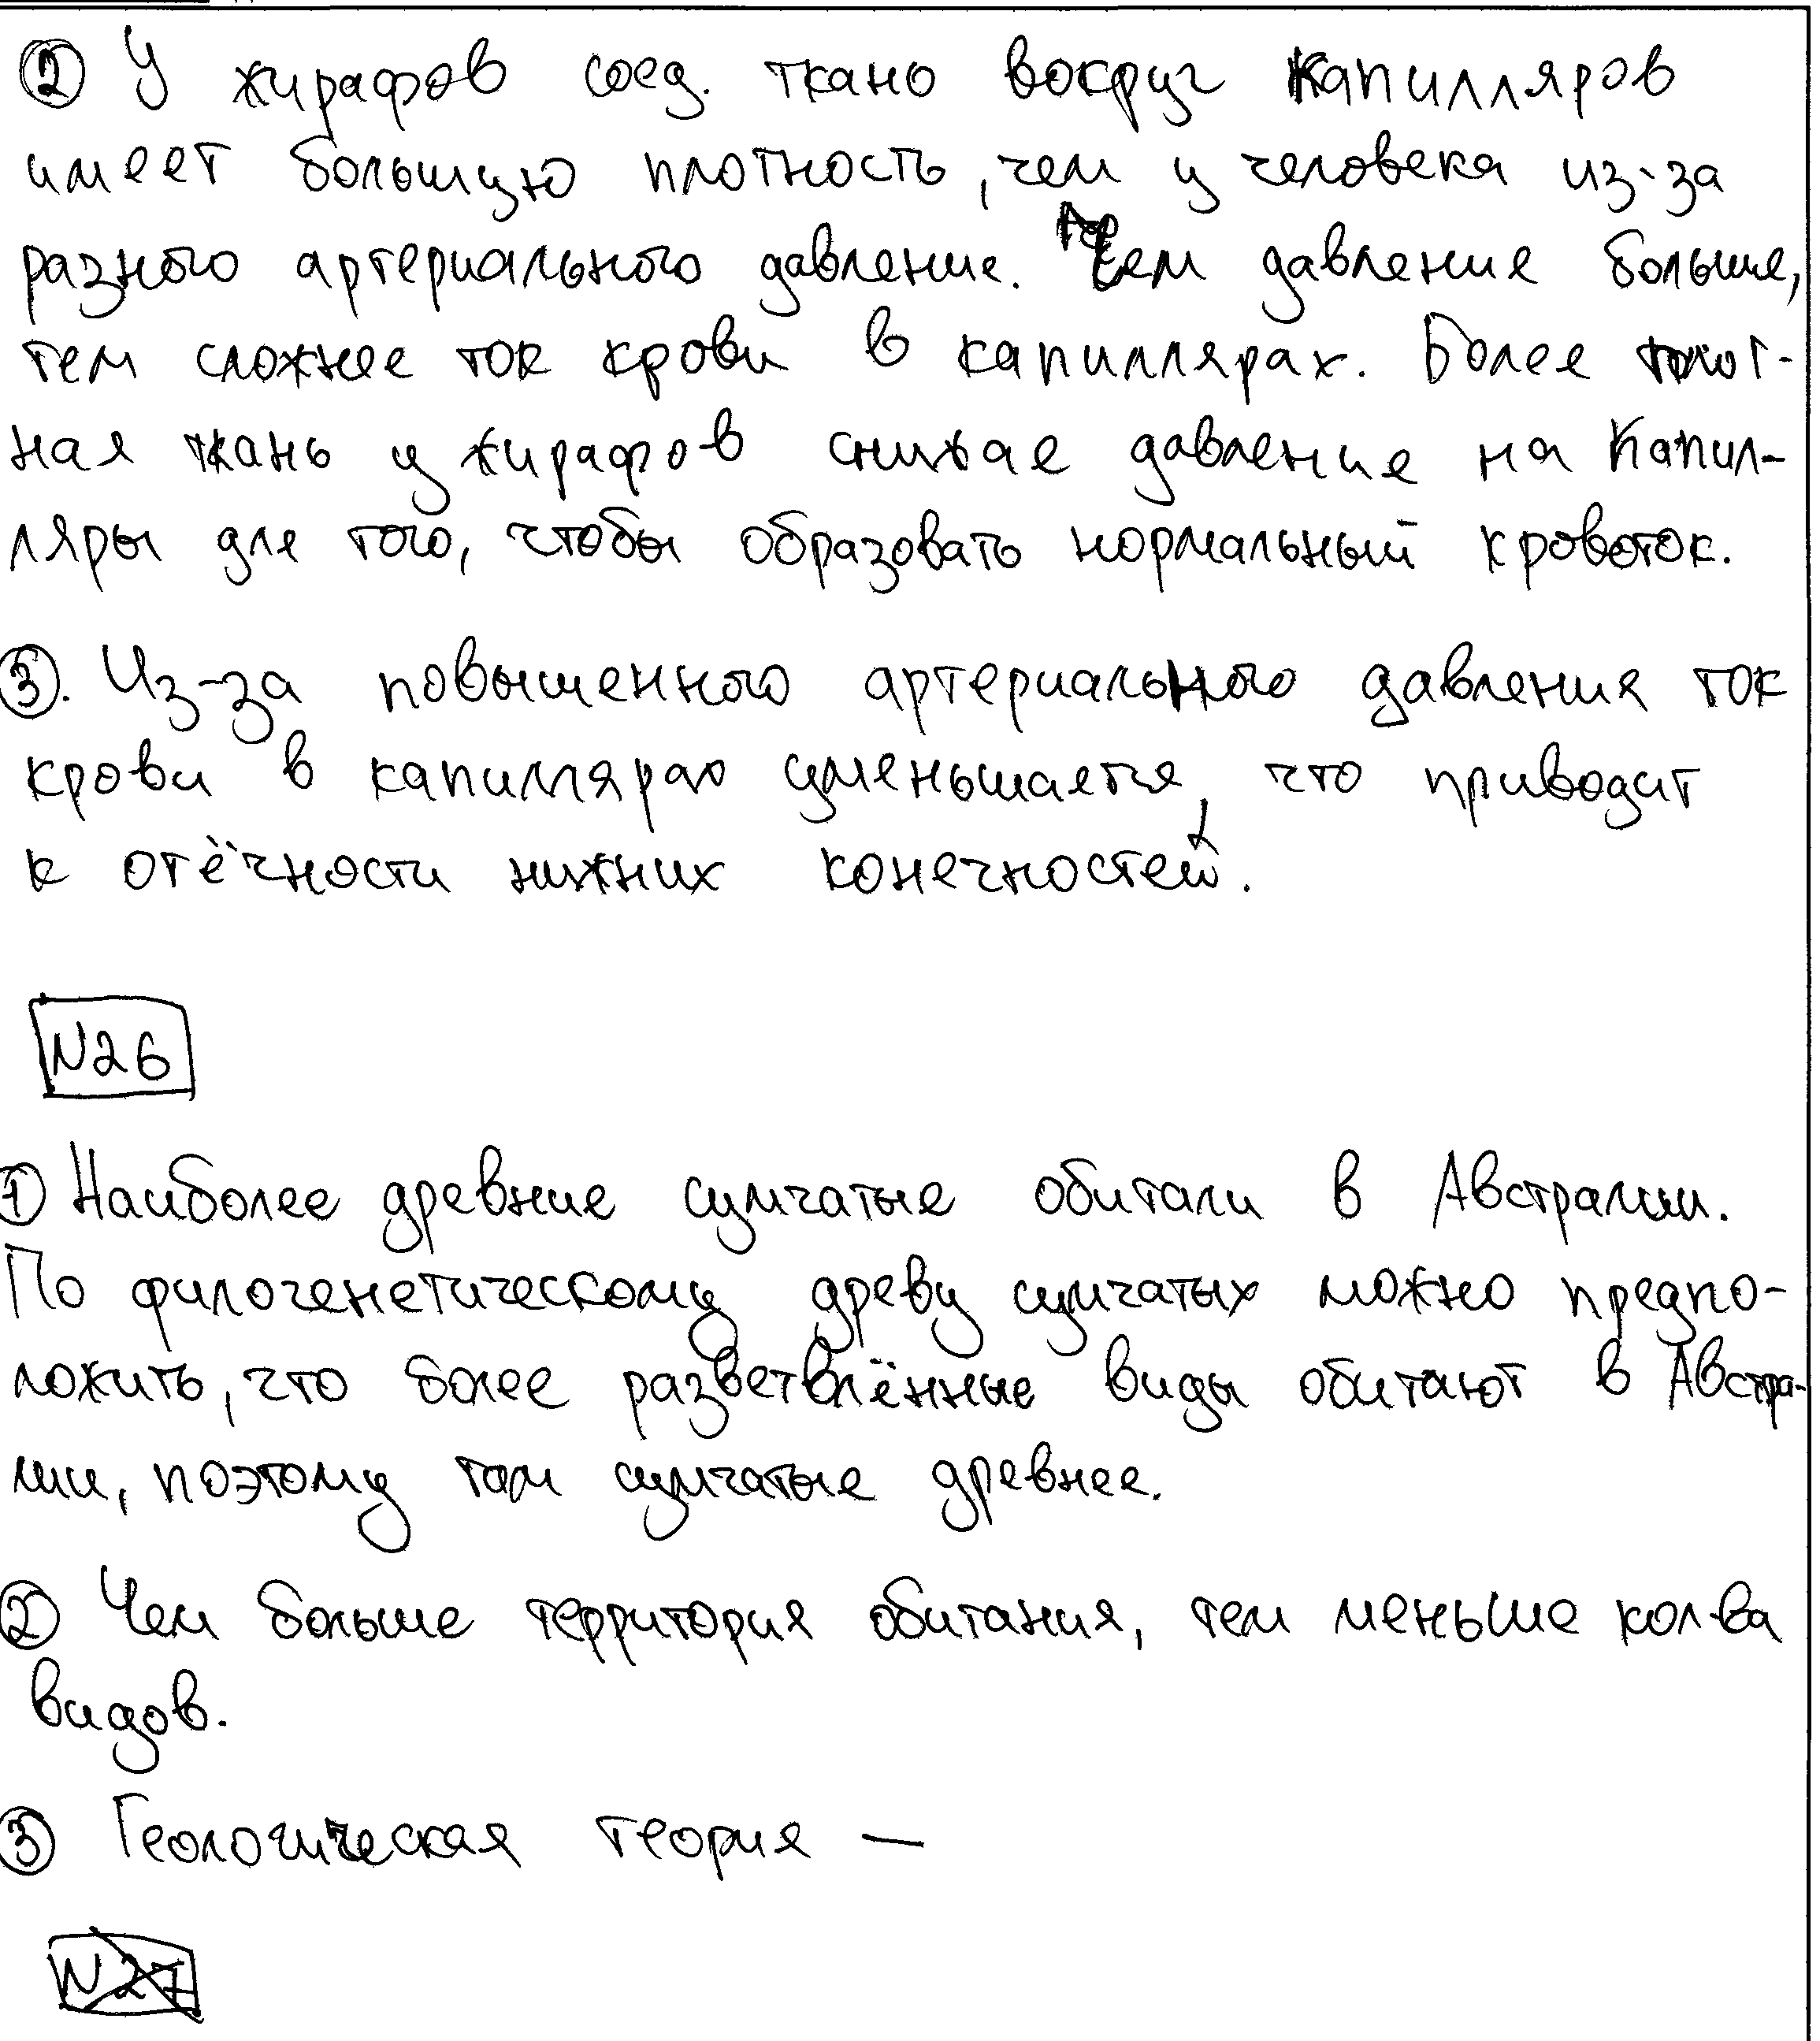 ② У жирафов соед. ткано вокруг капилляров
имеет большую плотность, чем у человека из-за
разного артериального давление. Чем давление больше,
тем сложнее ток крови в капиллярах. Более плот-
ная ткань у жирафов снижае давление на капил-
ляры для того, чтобы образовать нормальный кровоток.
③. Из-за повышенного артериального давления ток
крови в капиллярах уменьшается, что приводит
к отёчности нижних конечностей.
N26
① Наиболее древние сумчатые обитали в Австралии.
По филогенетическому древу сумчатых можно предпо-
ложить, что более разветвлённые виды обитают в Австра-
лии, поэтому там сумчатые древнее.
② Чем больше территория обитания, тем меньше кол-ва
видов.
③ Геологическая теория —
N27